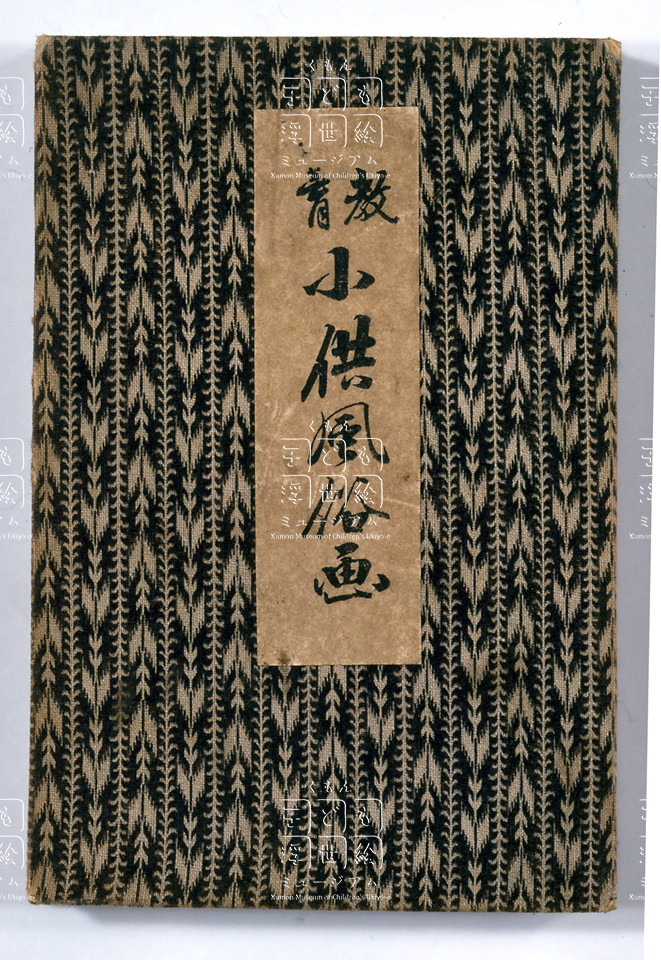 教育
小供風俗画
くもん
子ども
浮世絵
ミュージアム
Kumon Museum of Children's Ukiyo-e
くもん
子ども
浮世絵
ミュージアム
Kumon Museum of Children's Ukiyo-e
くもん
子ども
浮世絵
ミュージアム
Kumon Museum of Children's Ukiyo-e